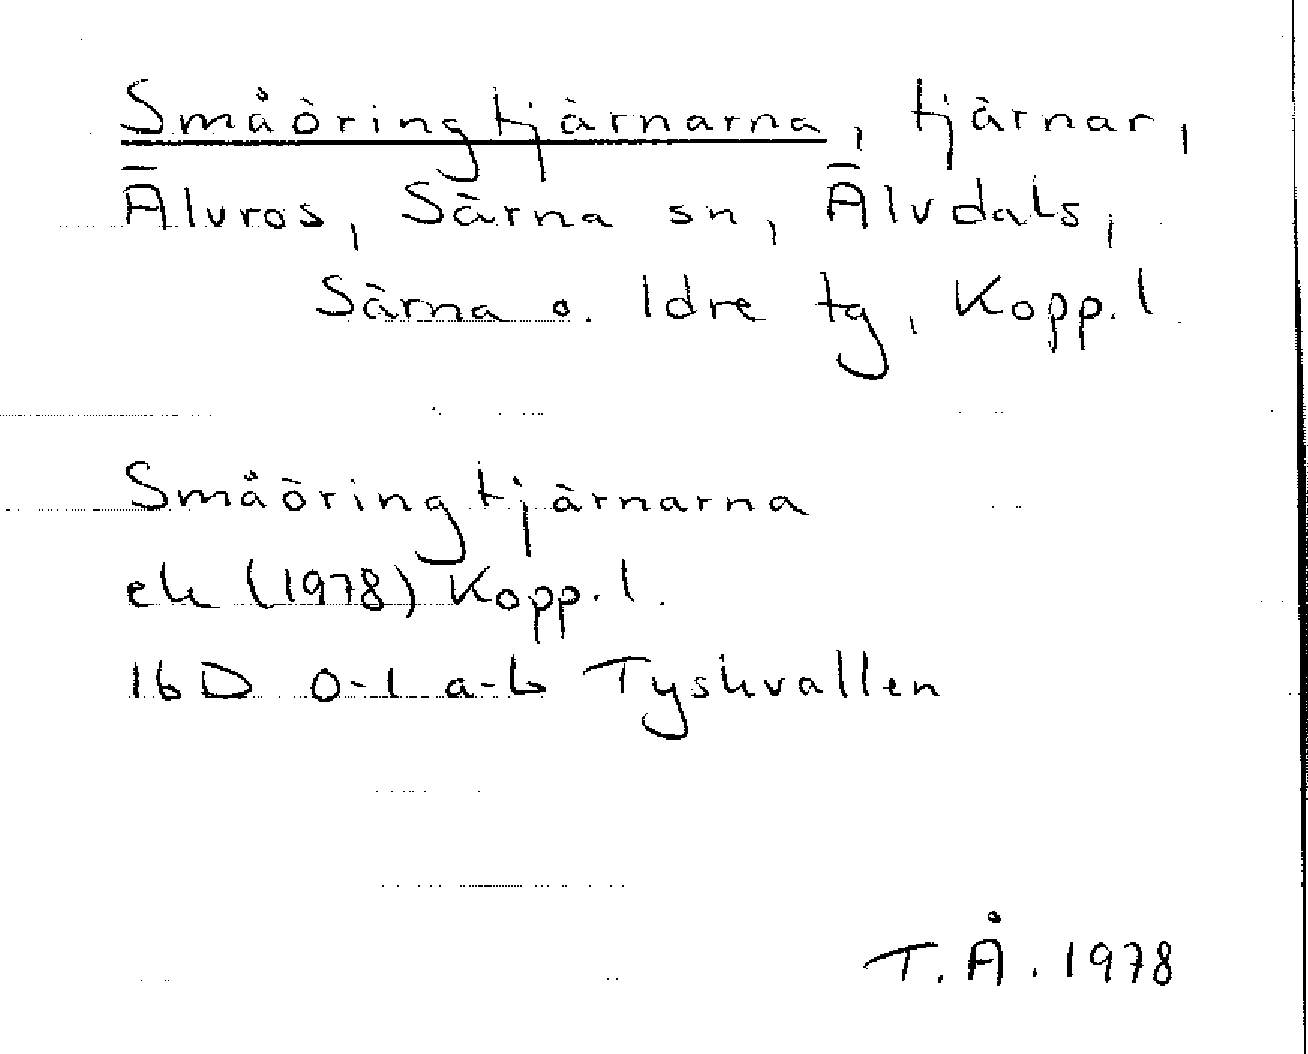 Småöringtjärnarna, tjärnar,
Älvros, Särna sn, Älvdals,
Särna o. Idre tg, Kopp. l.
Småöringtjärnarna
ek (1978) Kopp. l.
16D 0-1 a-b Tyskvallen
T. Å. 1978